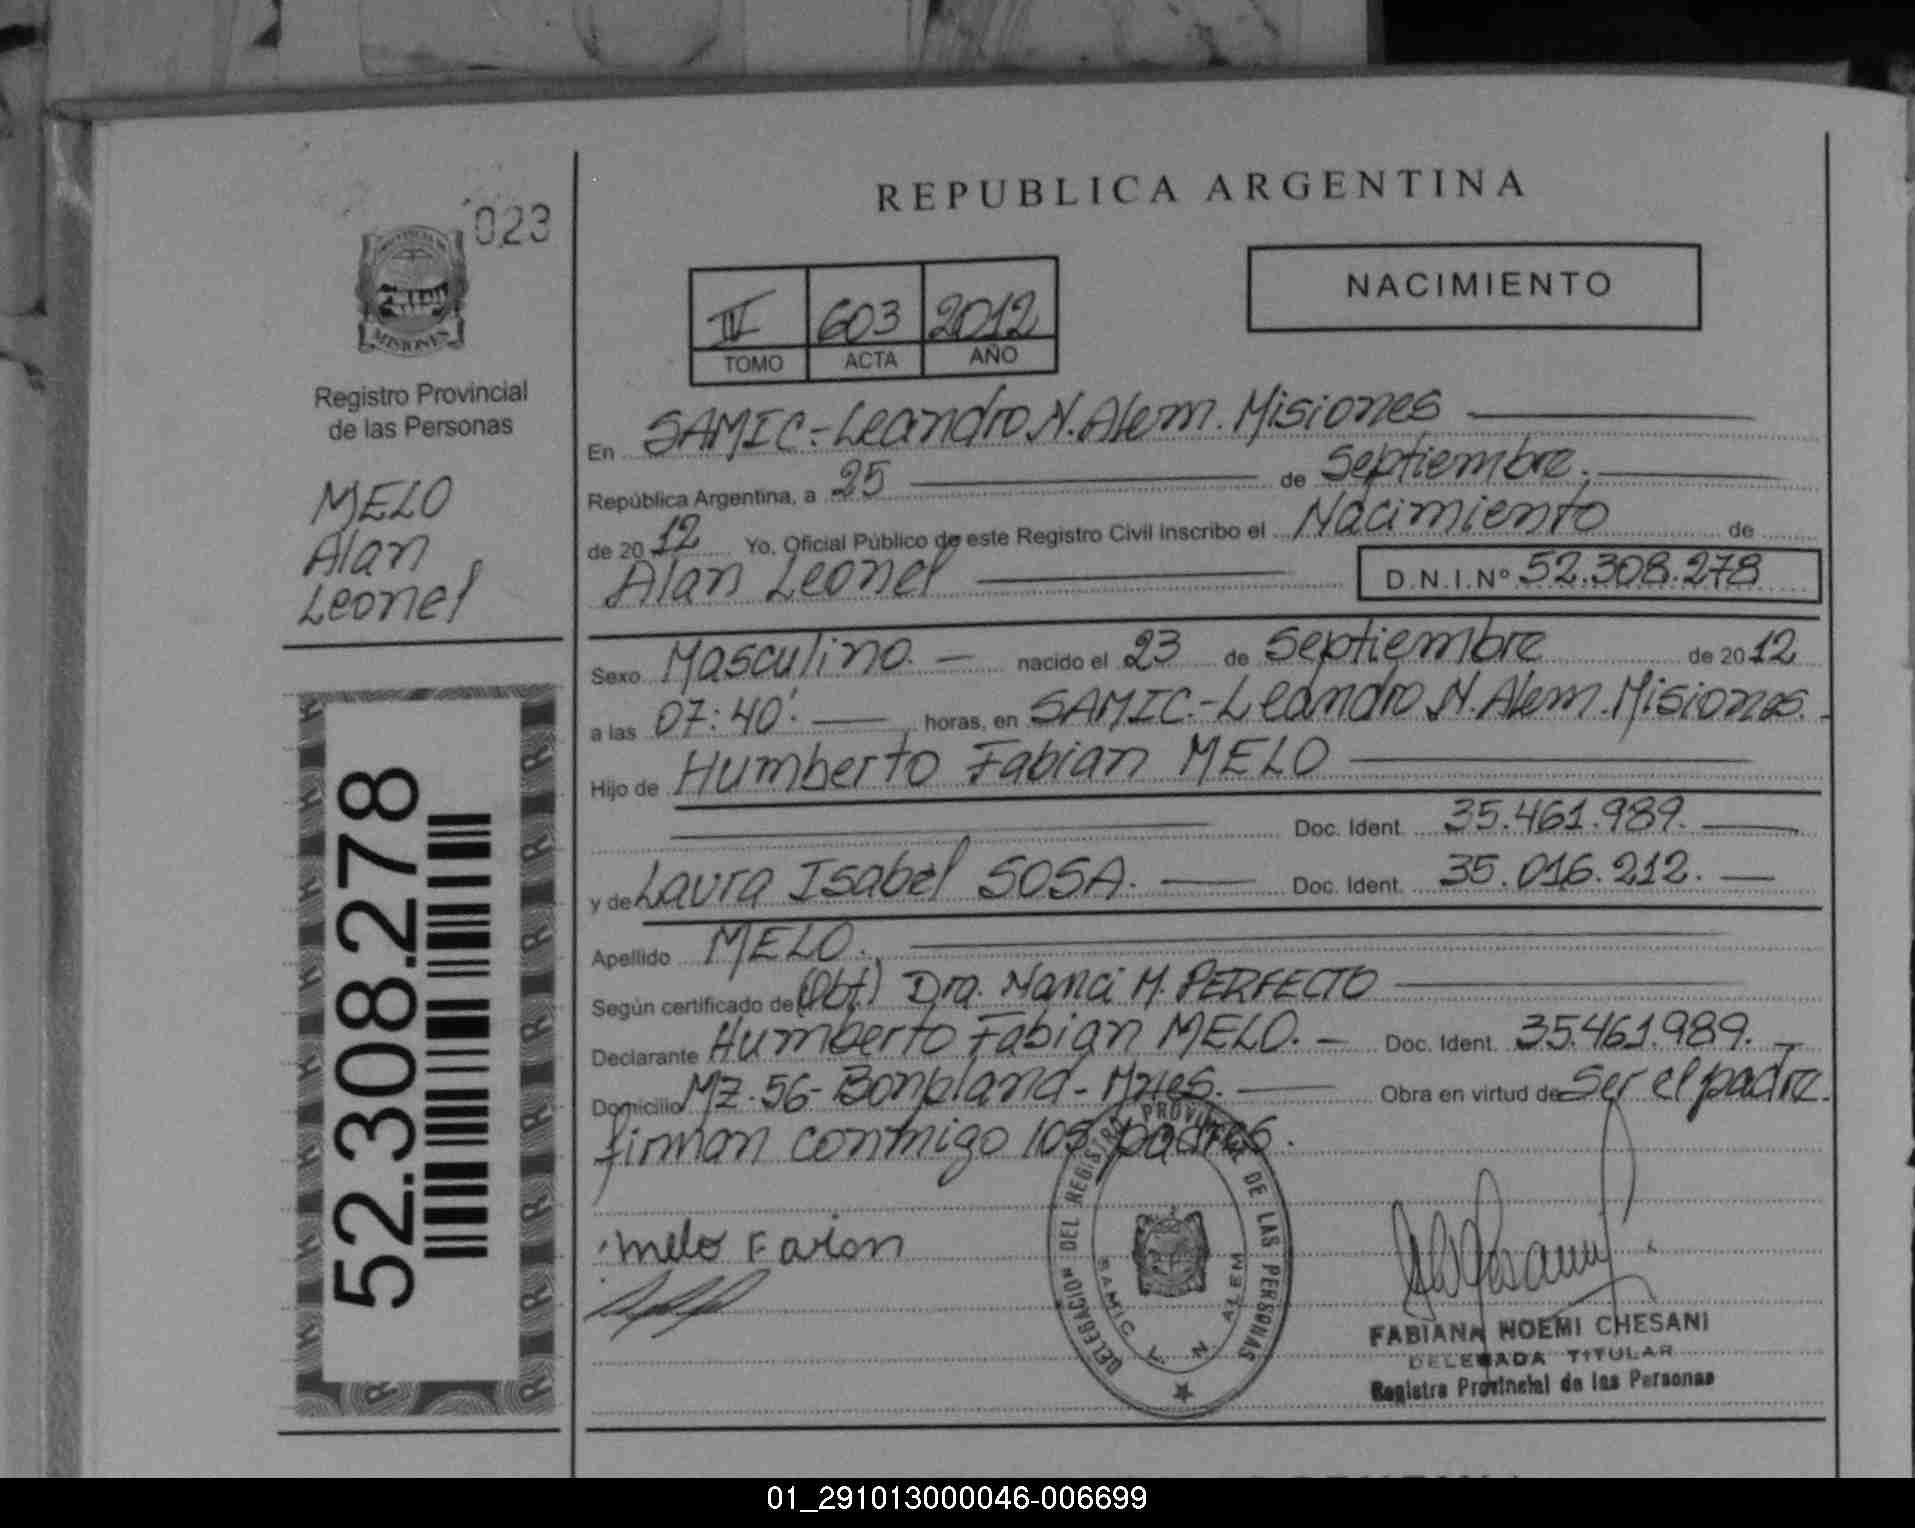 023
PROVINCIA DE
MISIONES
Registro Provincial
de las Personas
MELO
Alan
Leonel
52.308.278
REPUBLICA ARGENTINA
NACIMIENTO
IV 603 2012
TOMO ACTA AÑO
En SAMIC-Leandro N. Alem. Misiones
República Argentina, a 25 de Septiembre.
de 2012 Yo, Oficial Público de este Registro Civil Inscribo el Nacimiento de
Alan Leonel D.N.I.Nº 52.308.278
Sexo Masculino. nacido el 23 de Septiembre de 2012
a las 07:40'. horas, en SAMIC.-Leandro N. Alem. Misiones.
Hijo de Humberto Fabian MELO
Doc. Ident. 35.461.989.
y de Laura Isabel SOSA. Doc. Ident. 35.016.212.
Apellido MELO.
Según certificado de (Obt) Dra. Nanci M. PERFECTO
Declarante Humberto Fabian MELO. Doc. Ident. 35.461.989.
Domicilio MZ. 56- Bonpland- Mnes. Obra en virtud de Ser el padre.
firman conmigo los padres.
melo Farion
DELEGACION DEL REGISTRO PROVINCIAL DE LAS PERSONAS
SAMIC L. N. ALEM
FABIANA NOEMI CHESANI
DELEGADA TITULAR
Registro Provincial de las Personas
01_291013000046-006699